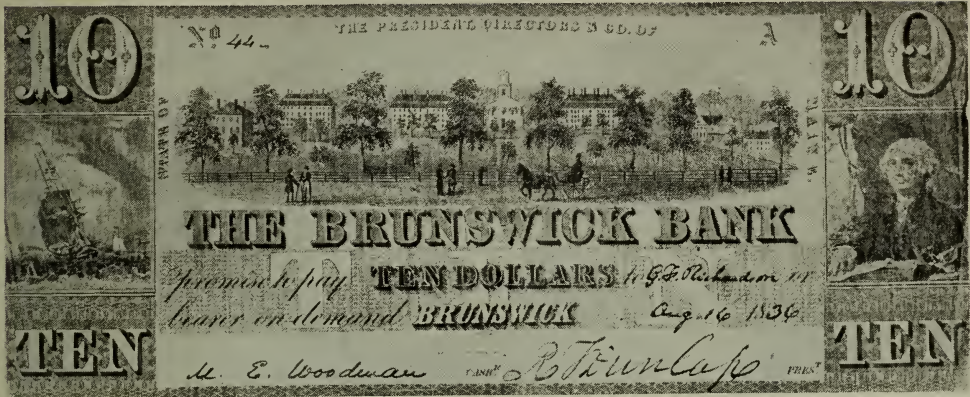 10 Nº 44. THE PRESIDENT, DIRECTORS & CO. OF A 10
MAINE.
THE BRUNSWICK BANK
promise to pay TEN DOLLARS to G. F. Richardson or
bearer on demand BRUNSWICK Aug 16 1836
TEN M. E. Woodman CASHR R. T. Dunlap PREST TEN